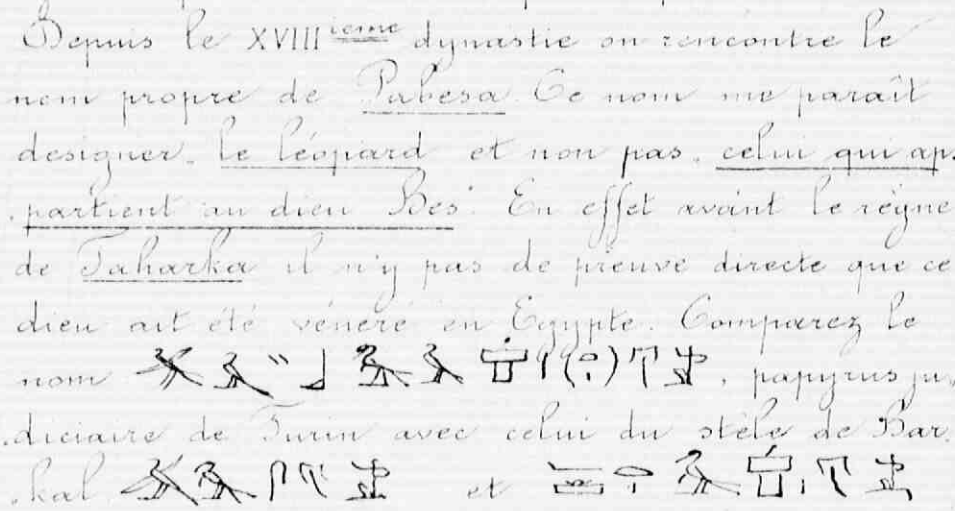 Depuis le XVIII ieme dynastie on rencontre le
nom propre de Pabesa. Ce nom me paraît
designer, le léopard et non pas, celui qui ap-
partient au dieu Bes. En effet avant le règne
de Taharka il n'y pas de preuve directe que ce
dieu ait été vénéré en Egypte. Comparez le
nom , papyrus ju-
diciaire de Turin avec celui du stèle de Bar-
kal et